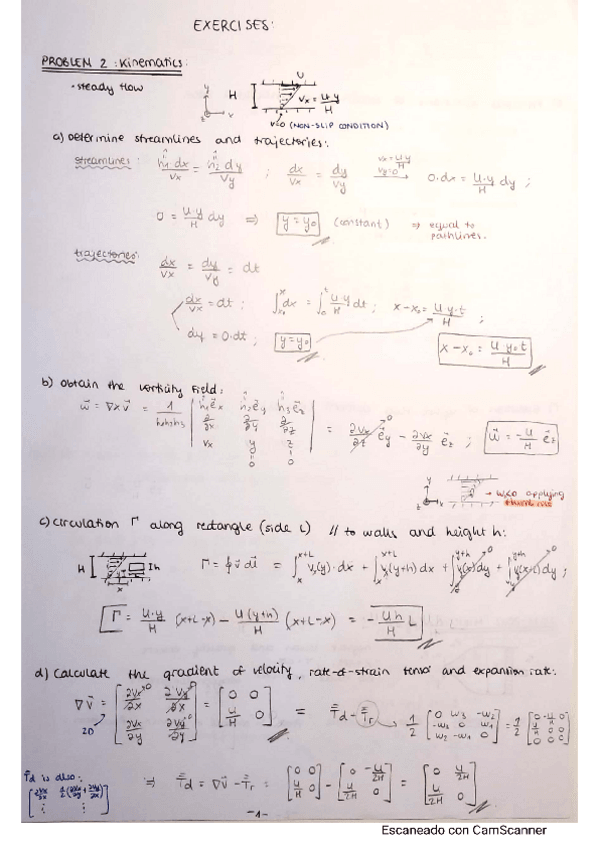 EXERCISES:
PROBLEM 2 : Kinematics:
· steady flow
y
x
z
H
U
Vx = U·y/H
v=0 (NON-SLIP CONDITION)
a) Determine streamlines and trajectories:
streamlines: h1 dx/Vx = h2 dy/Vy ; dx/Vx = dy/Vy → Vx=U·y/H Vy=0 0·dx = U·y/H dy ;
0 = U·y/H dy ⇒ y = y0 (constant) ⇒ equal to pathlines.
trajectories: dx/Vx = dy/Vy = dt
dx/Vx = dt ; ∫dx = ∫ U·y/H dt ; x - x0 = U·y·t/H ;
dy = 0·dt ; y = y0
x - x0 = U·y0·t/H
b) Obtain the vorticity field:
ω = ∇×v = 1/h1h2h3 | h1ex h2ey h3ez | = ∂Vx/∂z ey - ∂Vx/∂y ez ; ω = -U/H ez
∂/∂x ∂/∂y ∂/∂z
→ ω<0 applying
c) circulation Γ along rectangle (side L) // to walls and height h:
H Ih
x
Γ = ∮ v dl = ∫ Vx(y)·dx + ∫ Vx(y+h) dx + ∫ Vy(x) dy + ∫ Vy(x+L) dy ;
Γ = U·y/H (x+L-x) - U(y+h)/H (x+L-x) = - Uh/H L
d) Calculate the gradient of velocity, rate-of-strain tensor and expansion rate:
∇v = [∂Vx/∂x ∂Vy/∂x ; ∂Vx/∂y ∂Vy/∂y] = [0 0 ; U/H 0] = Td - Tr → 1/2 [0 ω3 -ω2 ; -ω3 0 ω1 ; ω2 -ω1 0] = 1/2 [0 -U/H 0 ; U/H 0 0 ; 0 0 0]
2D
Td is also:
[∂Vx/∂x 1/2(∂Vx/∂y + ∂Vy/∂x) ; ⋮ ⋮]
⇒ Td = ∇v - Tr = [0 0 ; U/H 0] - [0 -U/2H ; U/2H 0] = [0 U/2H ; U/2H 0]
-1-
Escaneado con CamScanner